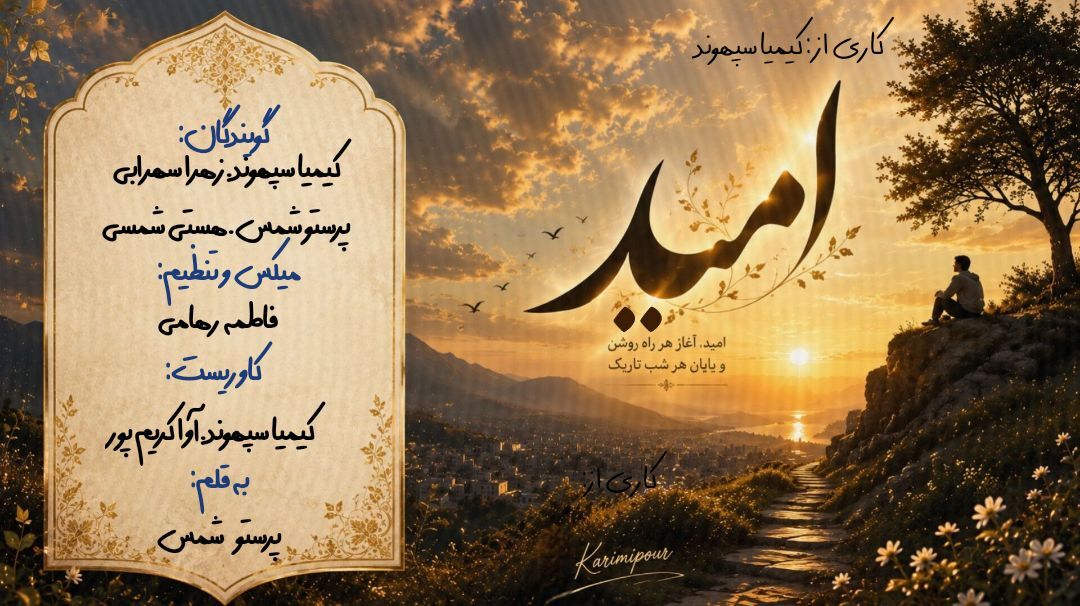 کاری از: کیمیا سپهوند
گویندگان:
کیمیا سپهوند. زهرا سهرابی
پرستو شمس. هستی شمسی
میکس و تنظیم:
فاطمه رهامی
کاوریست:
کیمیا سپهوند. آوا کریم پور
به قلم:
پرستو شمس
امید
امید، آغاز هر راه روشن
و پایان هر شب تاریک
کاری از:
Karimipour